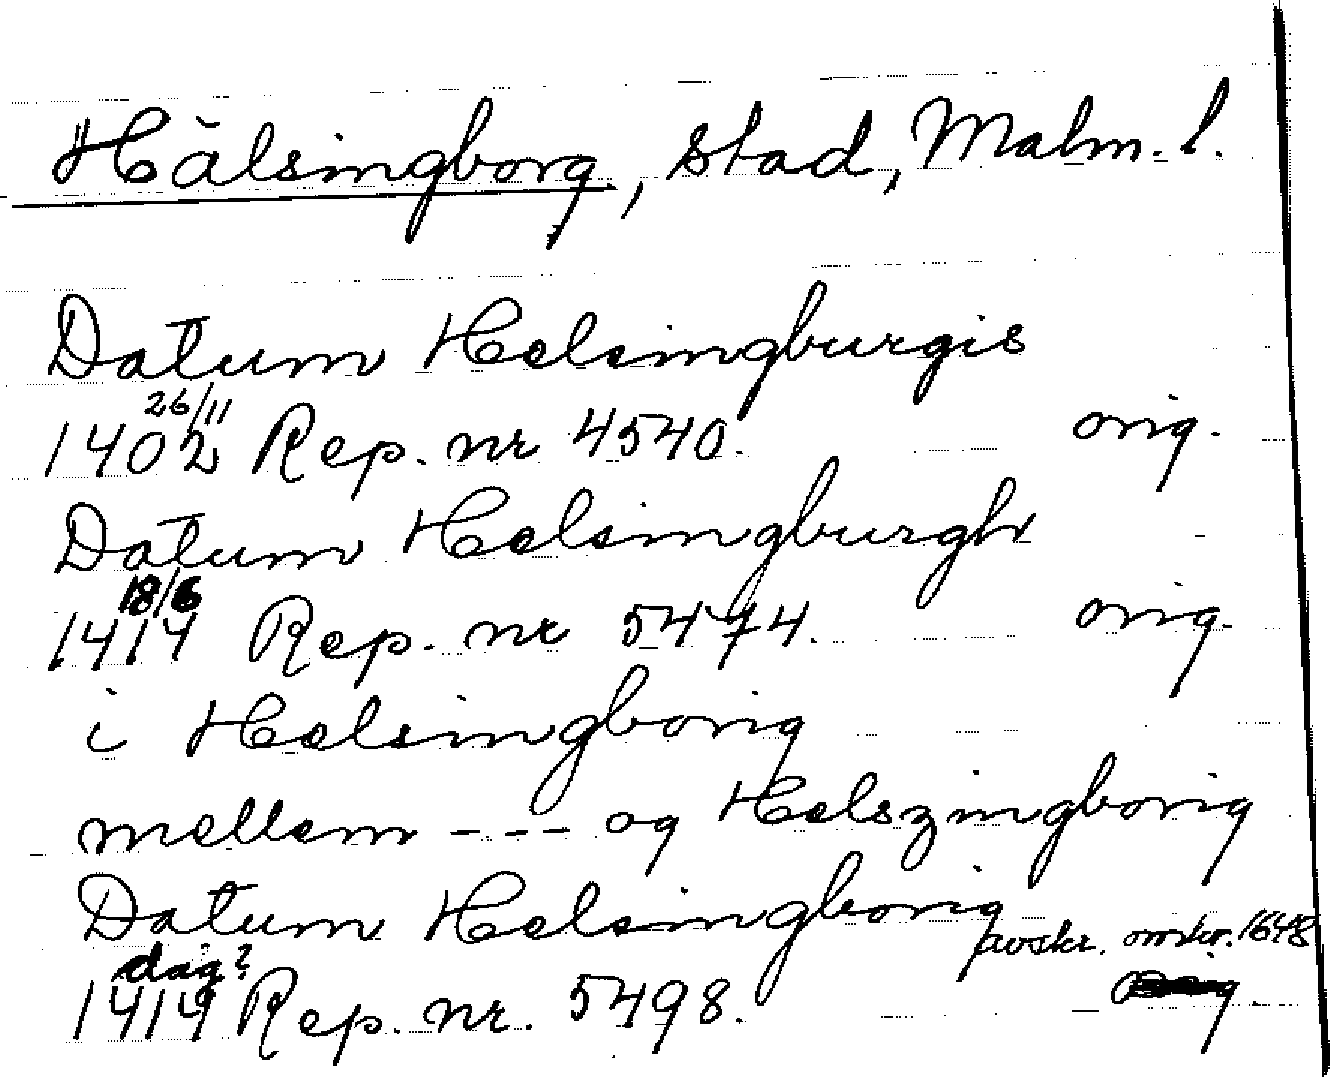 Hälsingborg, stad, Malm. l.
Datum Helsingburgis
1402 26/11 Rep. nr 4540. orig.
Datum Helsingburgh
1414 18/6 Rep. nr 5474. orig.
i Helsingborig
mellem - - - og Helszingborig
Datum Helsingborig avskr. omkr. 1648
1414 dag? Rep. nr. 5498.